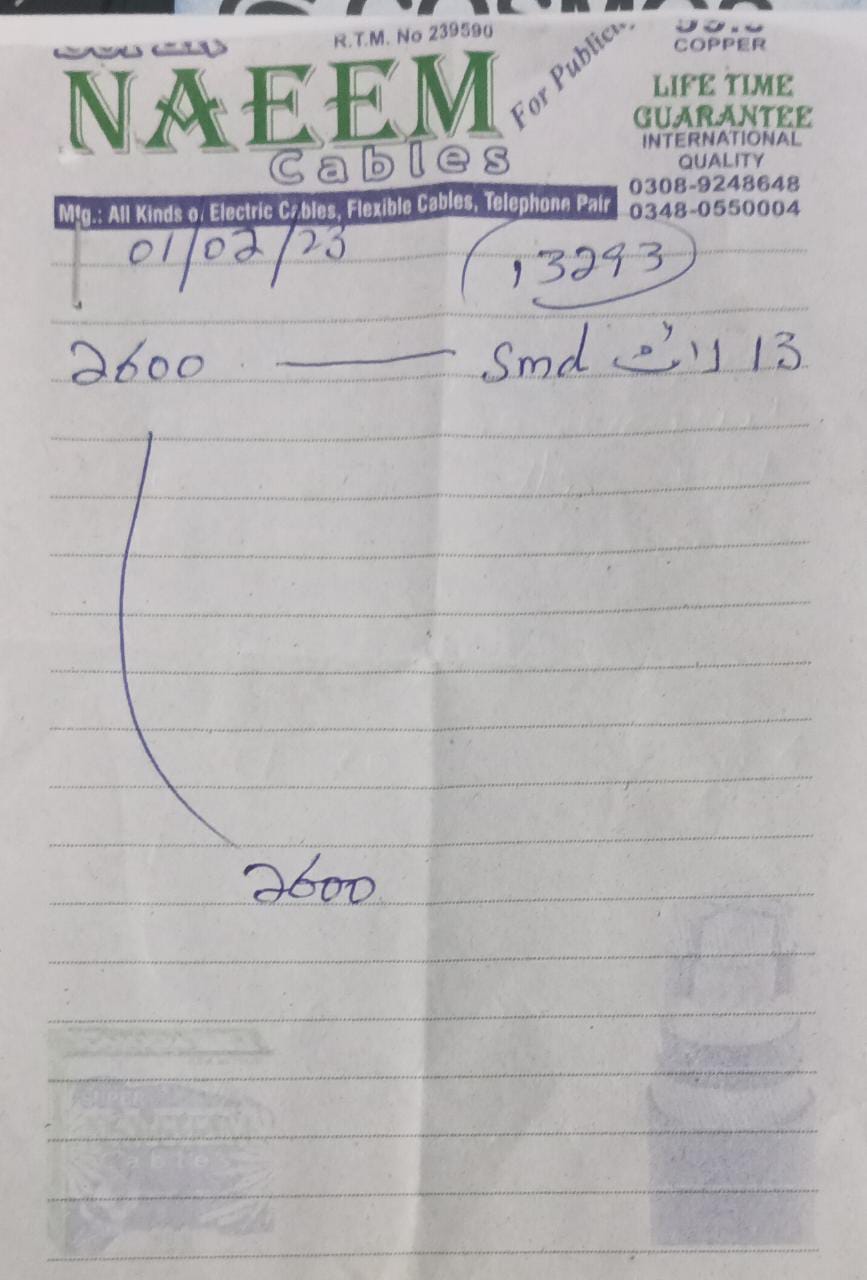 COSMOS
R.T.M. No 239590
NAEEM
Cables
For Public
COPPER
LIFE TIME
GUARANTEE
INTERNATIONAL
QUALITY
0308-9248648
0348-0550004
Mfg.: All Kinds of Electric Cables, Flexible Cables, Telephone Pair
01/02/23
13293
13 لائٹ Smd — 2600
2600
SUPER